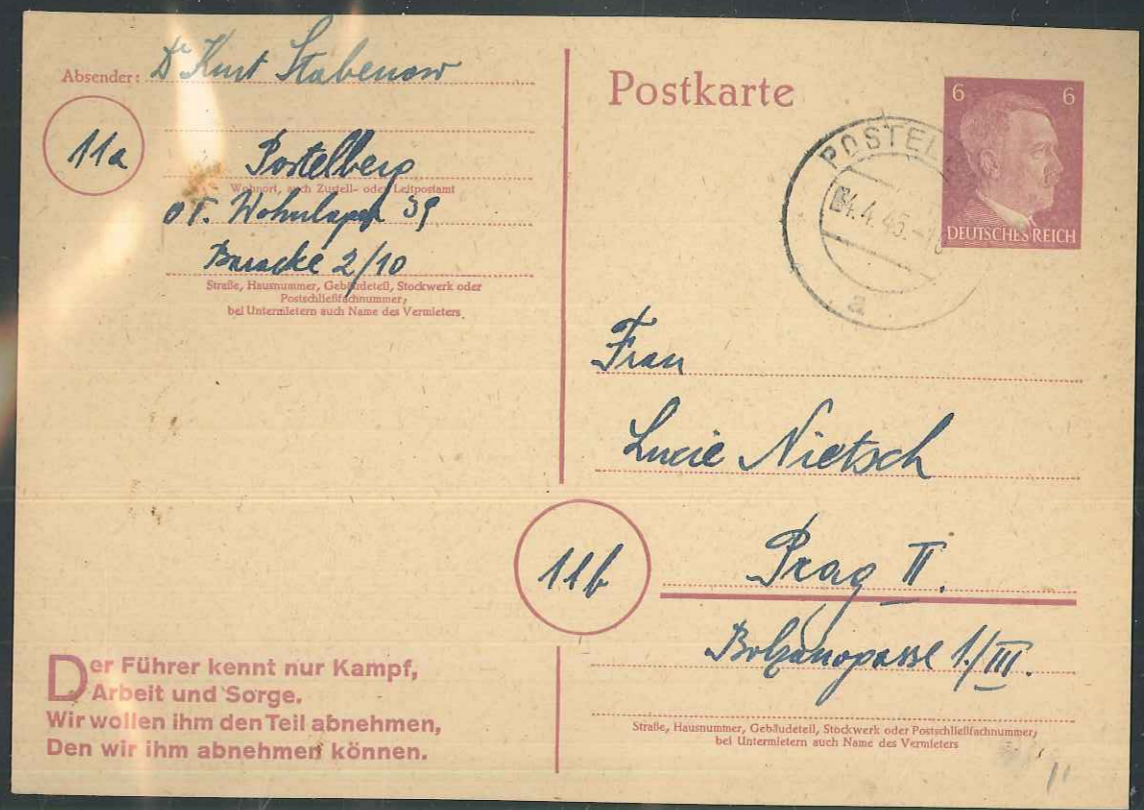 Absender: Dr Kurt Stabenow
11a
Postelberg
Wohnort, auch Zustell- oder Leitpostamt
OT. Wohnlager 39
Baracke 2/10
Straße, Hausnummer, Gebäudeteil, Stockwerk oder
Postschließfachnummer;
bei Untermietern auch Name des Vermieters
Postkarte
6 6
DEUTSCHES REICH
POSTEL
4.4.45.-18
a
Frau
Lucie Nietsch
11b
Prag II.
Bolzanogasse 1./III.
Straße, Hausnummer, Gebäudeteil, Stockwerk oder Postschließfachnummer;
bei Untermietern auch Name des Vermieters
Der Führer kennt nur Kampf,
Arbeit und Sorge.
Wir wollen ihm den Teil abnehmen,
Den wir ihm abnehmen können.